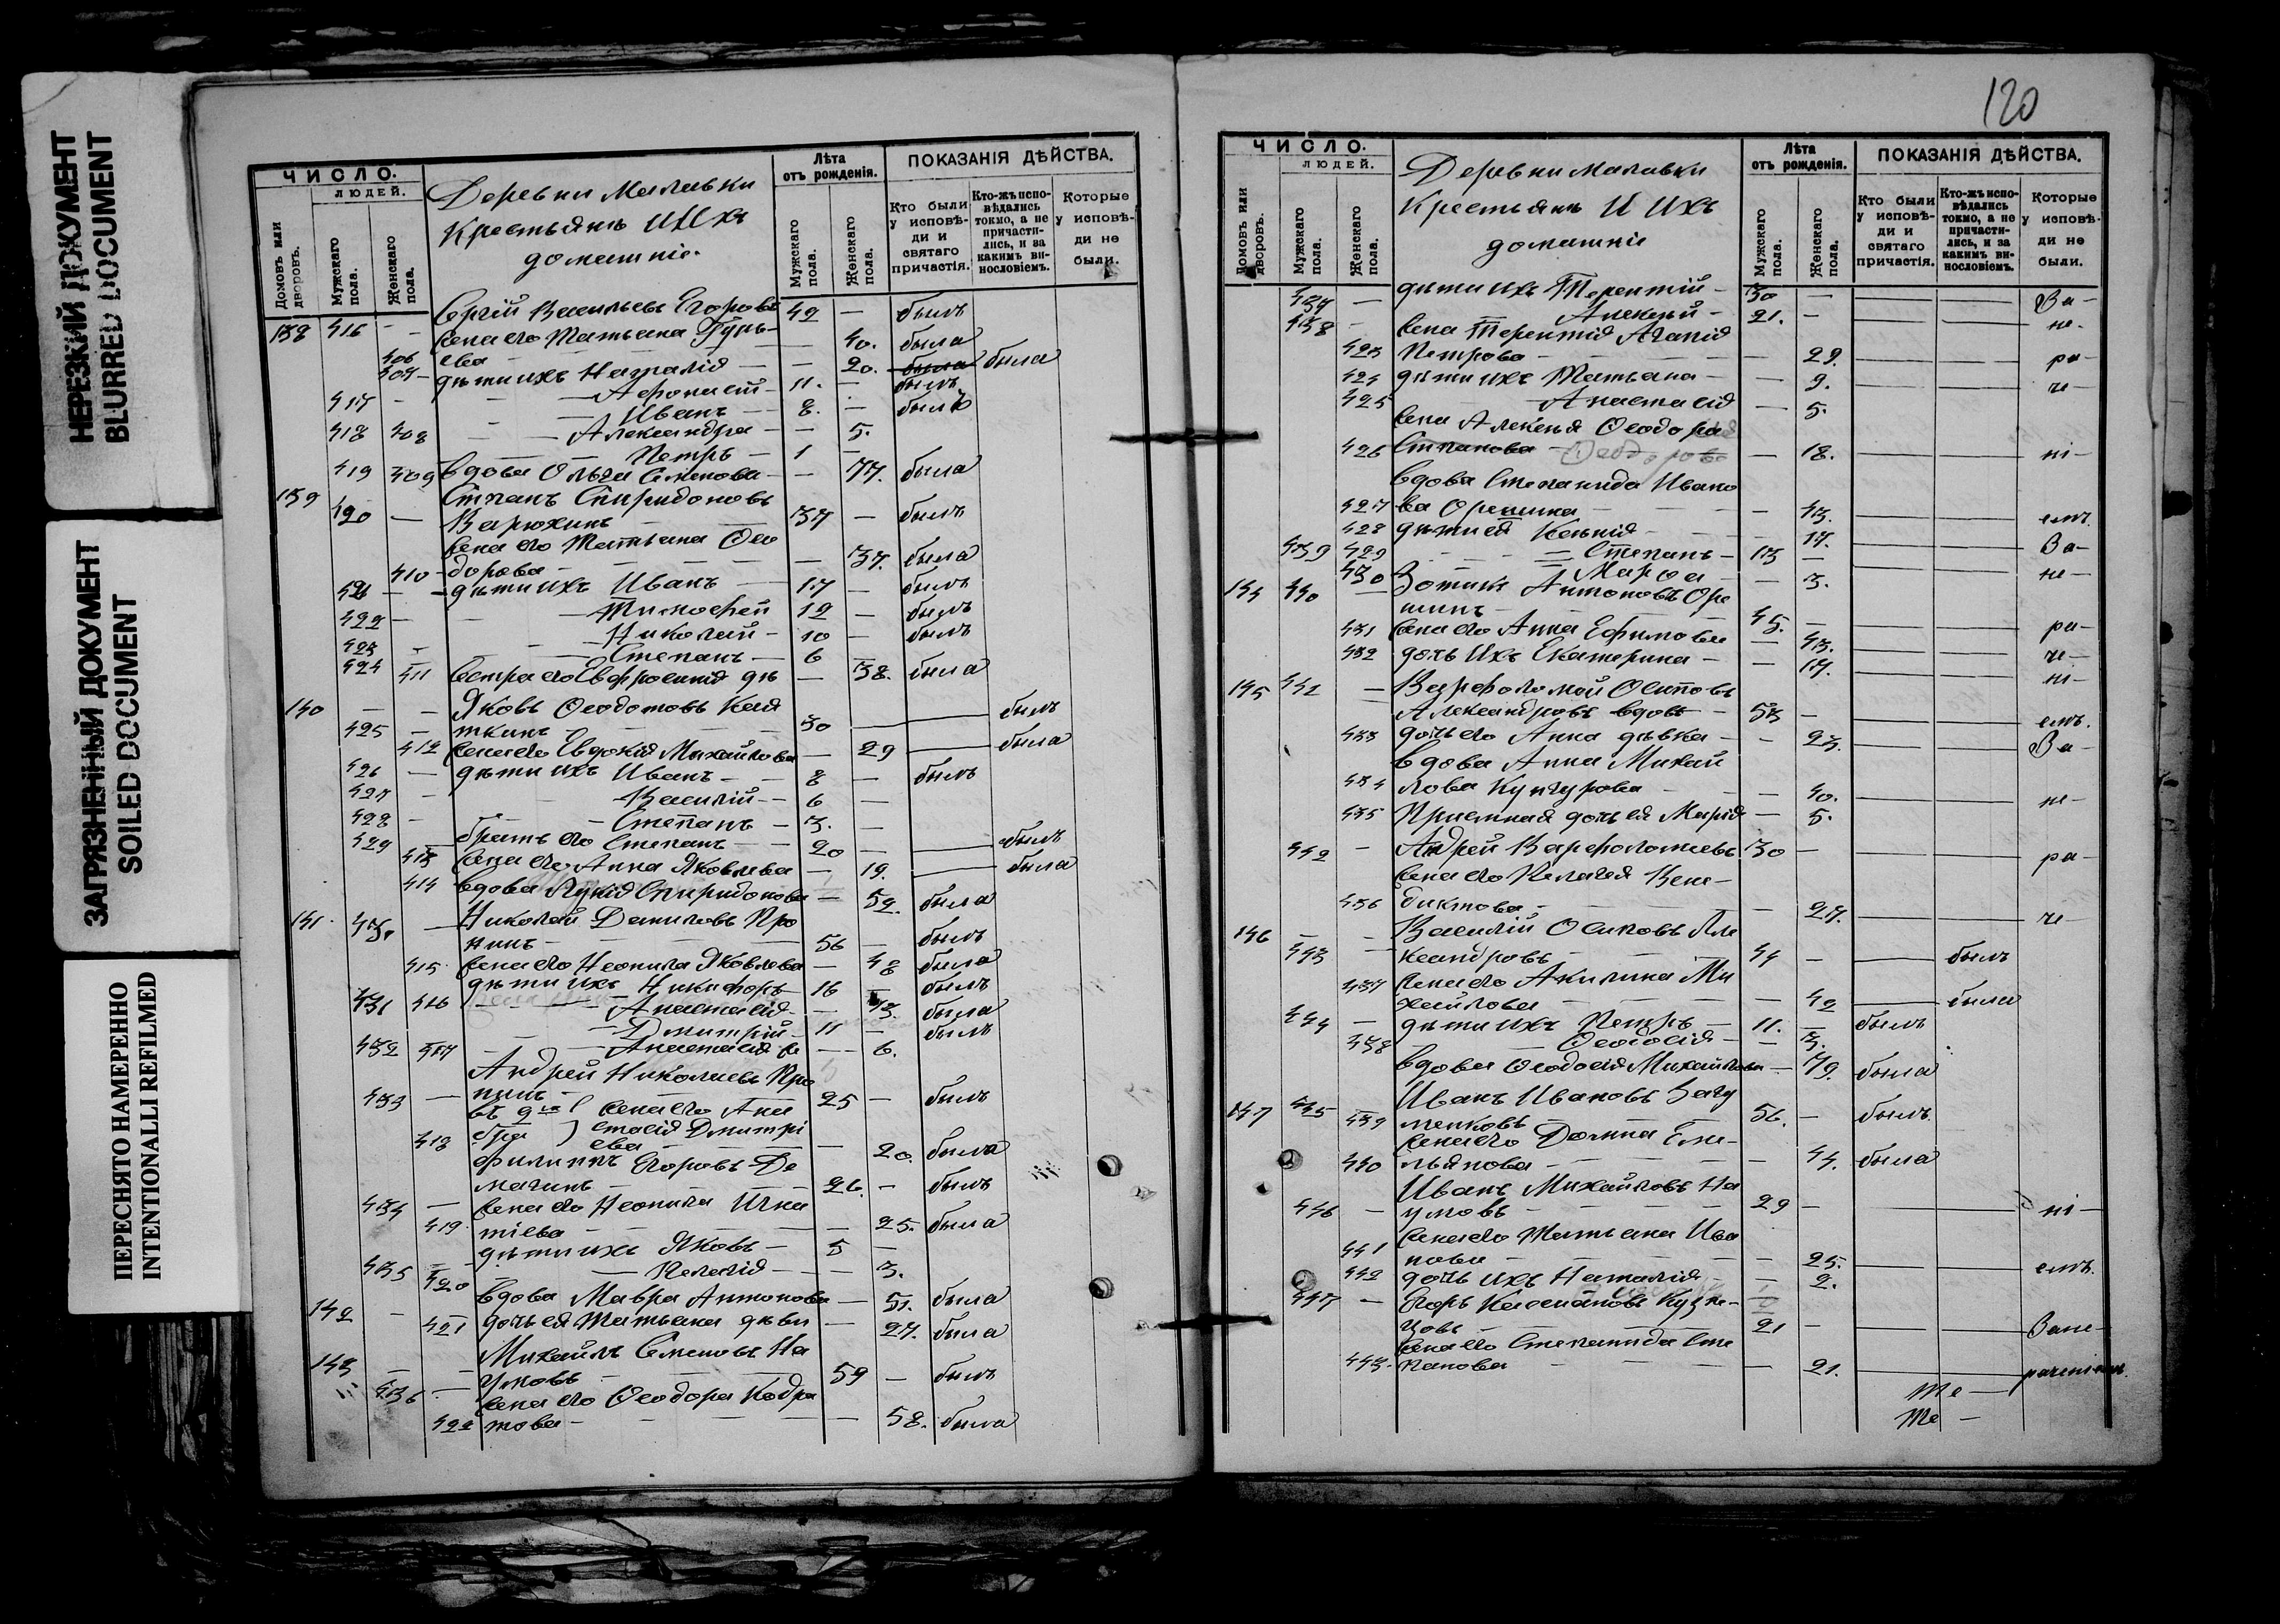 НЕРЕЗКИЙ ДОКУМЕНТ
BLURRED DOCUMENT
ЗАГРЯЗНЕННЫЙ ДОКУМЕНТ
SOILED DOCUMENT
ПЕРЕСНЯТО НАМЕРЕННО
INTENTIONALLI REFILMED
ЧИСЛО.
ЛЮДЕЙ.
Домовъ или дворовъ.
Мужскаго пола.
Женскаго пола.
Деревни Малавки
Крестьянъ И Ихъ
домашніе.
Лѣта
отъ рожденія.
Мужскаго пола.
Женскаго пола.
ПОКАЗАНІЯ ДѢЙСТВА.
Кто были у исповѣди и святаго причастія.
Кто-жъ исповѣдались токмо, а не причастились, и за какимъ винословіемъ.
Которые у исповѣди не были.
138 416 - - Сергій Васильевъ Егоровъ 42 - былъ
жена его Татьяна Гурь-
406 ева - 40. была
407 - дѣти ихъ Наталія - - 20. была была
417 - - Афонасій - 11. - былъ
418 - Иванъ - 8. - былъ
408 - Александра - - 5.
419 - Петръ - 1 -
409 вдова Ольга Семенова - - 77. была
139 Степанъ Спиридоновъ
420 - 37 - былъ
жена его Татьяна Ѳео
410 - дорова - - 37. была
421 - - дѣти ихъ Иванъ - 17 - былъ
422 - - Тимофей 12 - былъ
423 - - Николай - 10 - былъ
424 - Степанъ - 6 -
411 Сестра его Евфросинія дѣ - 38. была
140 - - Яковъ Ѳедотовъ
425 - ткинъ - 30 - былъ
412 жена его Евдокія Михайлова - 29 - была
426 - дѣти ихъ Иванъ - 8 - былъ
427 - Василій - 6 -
428 - - Степанъ - 3. -
429 братъ его Степанъ - 20 - былъ
413 жена его Анна Яковлева - 19. - была
414 вдова Лукія Спиридонова - 52. была
141 430 - Николай Даниловъ Про
нинъ - 56 - былъ
415 жена его Неонила Яковлева - 48 была
дѣти ихъ Никифоръ 16 - былъ
431 416 - Анастасія - - 13. была
- Дмитрій - 11 - былъ
432 417 - Анастасія - 6.
Андрей Николаевъ Про
433 - нинъ 25 - былъ
жена его Ана
418 стасія Дмитрі
ева - 20. была
Филиппъ Егоровъ Де
434 - 26. - былъ
жена его Неонила Игна
419 тіева - 25. была
дѣти ихъ Яковъ - 5 -
435 - Пелагія - - 3.
420 вдова Мавра Антонова - 51. была
142 - 421 дочь ея Татьяна дѣви - 27. была
143 - - Михайлъ Семеновъ На
436 - умовъ - 59 - былъ
жена его Ѳеодора Кодра
422 това - 58. была
120
ЧИСЛО.
ЛЮДЕЙ.
Домовъ или дворовъ.
Мужскаго пола.
Женскаго пола.
Деревни Малавки
Крестьянъ И Ихъ
домашніе
Лѣта
отъ рожденія.
Мужскаго пола.
Женскаго пола.
ПОКАЗАНІЯ ДѢЙСТВА.
Кто были у исповѣди и святаго причастія.
Кто-жъ исповѣдались токмо, а не причастились, и за какимъ винословіемъ.
Которые у исповѣди не были.
437 - дѣти ихъ Терентій - 30 - За-
438 - Алексѣй - 21. - не-
жена Терентія Агапія
423 Петрова - - 29. ра-
424 дѣти ихъ Татьяна - - 9. че-
425 - Анастасія - 5.
жена Алексѣя Ѳеодора
426 Степанова - Ѳеодорова - 18. ні-
вдова Степанида Ивано
427 ва Орешина - - 43. емъ.
428 дѣти ея Ксенія - - 17. За-
439 429 - Степанъ - 13 - не-
430 = Марѳа - - 3.
144 440 - Зотикъ Антоновъ Оре
шинъ - 45. - ра-
431 жена его Анна Ефимова - 43. че-
432 дочь Ихъ Екатерина - - 17. ні-
145 441 - Варфоломей Осиповъ
Александровъ вдовъ - 53 - емъ.
433 дочь его Анна дѣвка - - 23. За-
вдова Анна Михай
434 лова Кунгурова - - 40. не-
435 Приемная дочь ея Марія - 5.
442 - Андрей Варфоломеевъ 30 - ра-
жена его Пелагея Вене-
436 диктова - - 27. че-
146 - - Василій Осиповъ Але
443 - ксандровъ - 44 - былъ
437 жена его Акилина Ми
хайлова - - 42 - была
444 - дѣти ихъ Петръ - 11. - былъ
438 - Ѳеодосія - - 3.
вдова Ѳеодосія Михайлова - 79. была
147 445 439 Иванъ Ивановъ
56. - былъ.
жена его Домна Еме-
440 льянова - - 44. была
Иванъ Михайловъ На
446 - умовъ - 29 - ні-
жена его Татьяна Ива
441 нова - - 25. емъ.
442 дочь ихъ Наталія - - 2.
447 - Егоръ Касьяновъ Кузне-
цовъ - 21 - Зане-
жена его Степанида Сте
443. панова - - 21. раченіемъ.
Те -
Те -